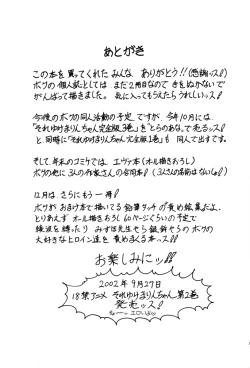 あとがき
この本を買ってくれたみんな ありがとう!!(感謝ッス!)
ボクの個人誌としては まだ2冊目なので きをぬかないで
がんばって描きました。気に入ってもらえたら うれしいッス!
今後のボクの同人活動の予定 ですが、今年10月には、
「それゆけまりんちゃん完全版3巻」を「とらのあな」で売るッス!
と同時に「それゆけまりんちゃん完全版3巻」も 同人で出すです。
そして、年末のコミケでは、エヴァ本(オール描きおろし)
ボクの他に 3人の作家さんの合同本!(3人さんの名前はないしょ!)
12月は、さらにもう一冊!
ボクが おまけ本で描いてる 鉛筆タッチの責め絵集だよ、
とりあえず オール描きおろし 60ページぐらいの予定で
綾波を縛ったり みずほ先生やら 銀鈴やらの ボクの
大好きなヒロイン達を 責めまくる本ッス!
お楽しみにッ!!
2002年9月27日
18禁アニメ それゆけまりんちゃん第2巻
発売ッス!